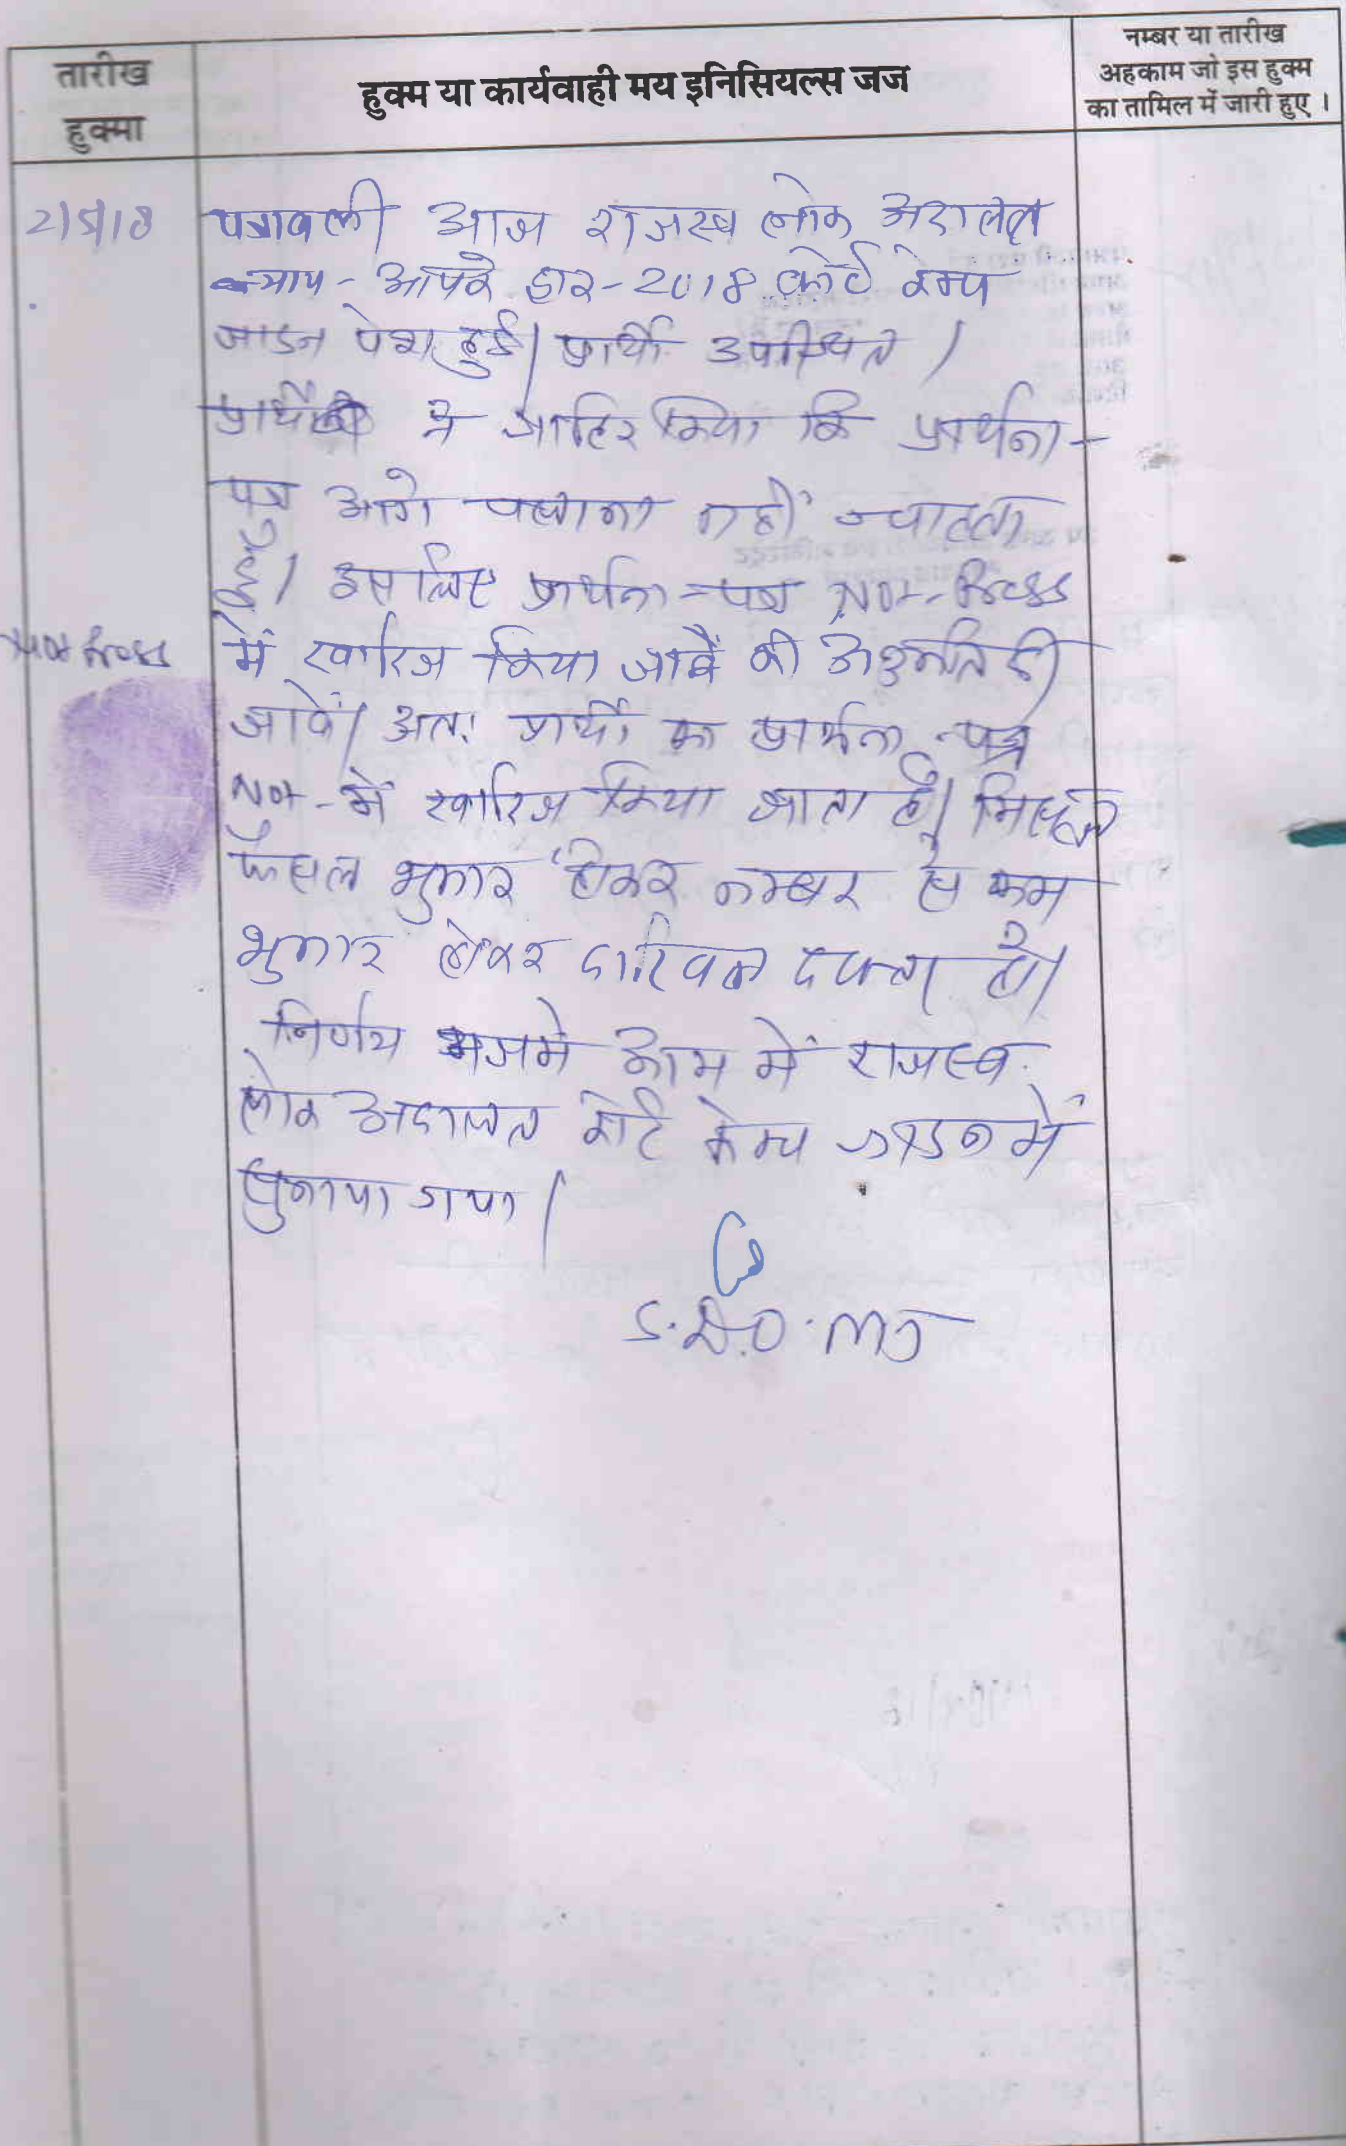 तारीख
हुक्मा
हुक्म या कार्यवाही मय इनिसियल्स जज
नम्बर या तारीख
अहकाम जो इस हुक्म
का तामिल में जारी हुए ।
21/5/18
पत्रावली आज राजस्व लोक अदालत
न्याय - आपके द्वार - 2018 कोर्ट केम्प
जाडन पेश हुई। प्रार्थी उपस्थित ।
प्रार्थी ने जाहिर किया कि प्रार्थना -
पत्र आगे चलाना नहीं चाहता
हूँ। इसलिए प्रार्थना - पत्र Not - Press
में खारिज किया जावें की अनुमति दी
Not Press
जावें। अतः प्रार्थी का प्रार्थना - पत्र
Not - में खारिज किया जाता है।
फैसल शुमार होकर नम्बर से कम
शुमार होकर दाखिल दफ्तर हो।
निर्णय मजमे आम में राजस्व
लोक अदालत कोर्ट केम्प जाडन में
सुनाया गया।
S.D.O. MJ